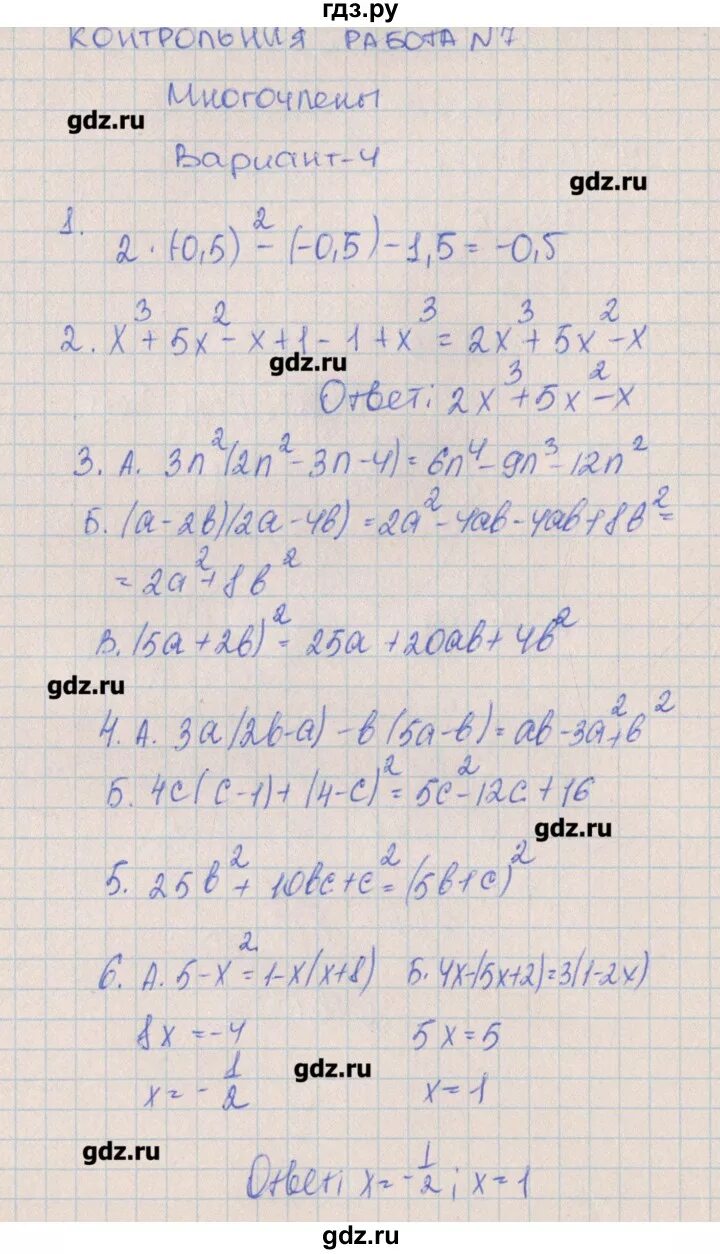 гдз.ру
КОНТРОЛЬНИЯ РАБОТА N7
Многочлены
gdz.ru
Вариант-4
gdz.ru
1. 2·(-0,5)² - (-0,5) - 1,5 = -0,5
2. x³ + 5x² - x + 1 - 1 + x³ = 2x³ + 5x² - x
gdz.ru
Ответ: 2x³ + 5x² - x
3. А. 3n²(2n² - 3n - 4) = 6n⁴ - 9n³ - 12n²
Б. (a - 2b)(2a - 4b) = 2a² - 4ab - 4ab + 8b² =
= 2a² + 8b²
В. (5a + 2b)² = 25a + 20ab + 4b²
gdz.ru
4. А. 3a(2b-a) - b(5a-b) = ab - 3a² + b²
Б. 4c(c-1) + (4-c)² = 5c² - 12c + 16
gdz.ru
5. 25b² + 10bc + c² = (5b+c)²
6. А. 5 - x² = 1 - x(x+8) Б. 4x-(5x+2)=3(1-2x)
8x = -4 5x = 5
gdz.ru
x = -1/2 x = 1
gdz.ru
Ответ: x = -1/2; x = 1
gdz.ru